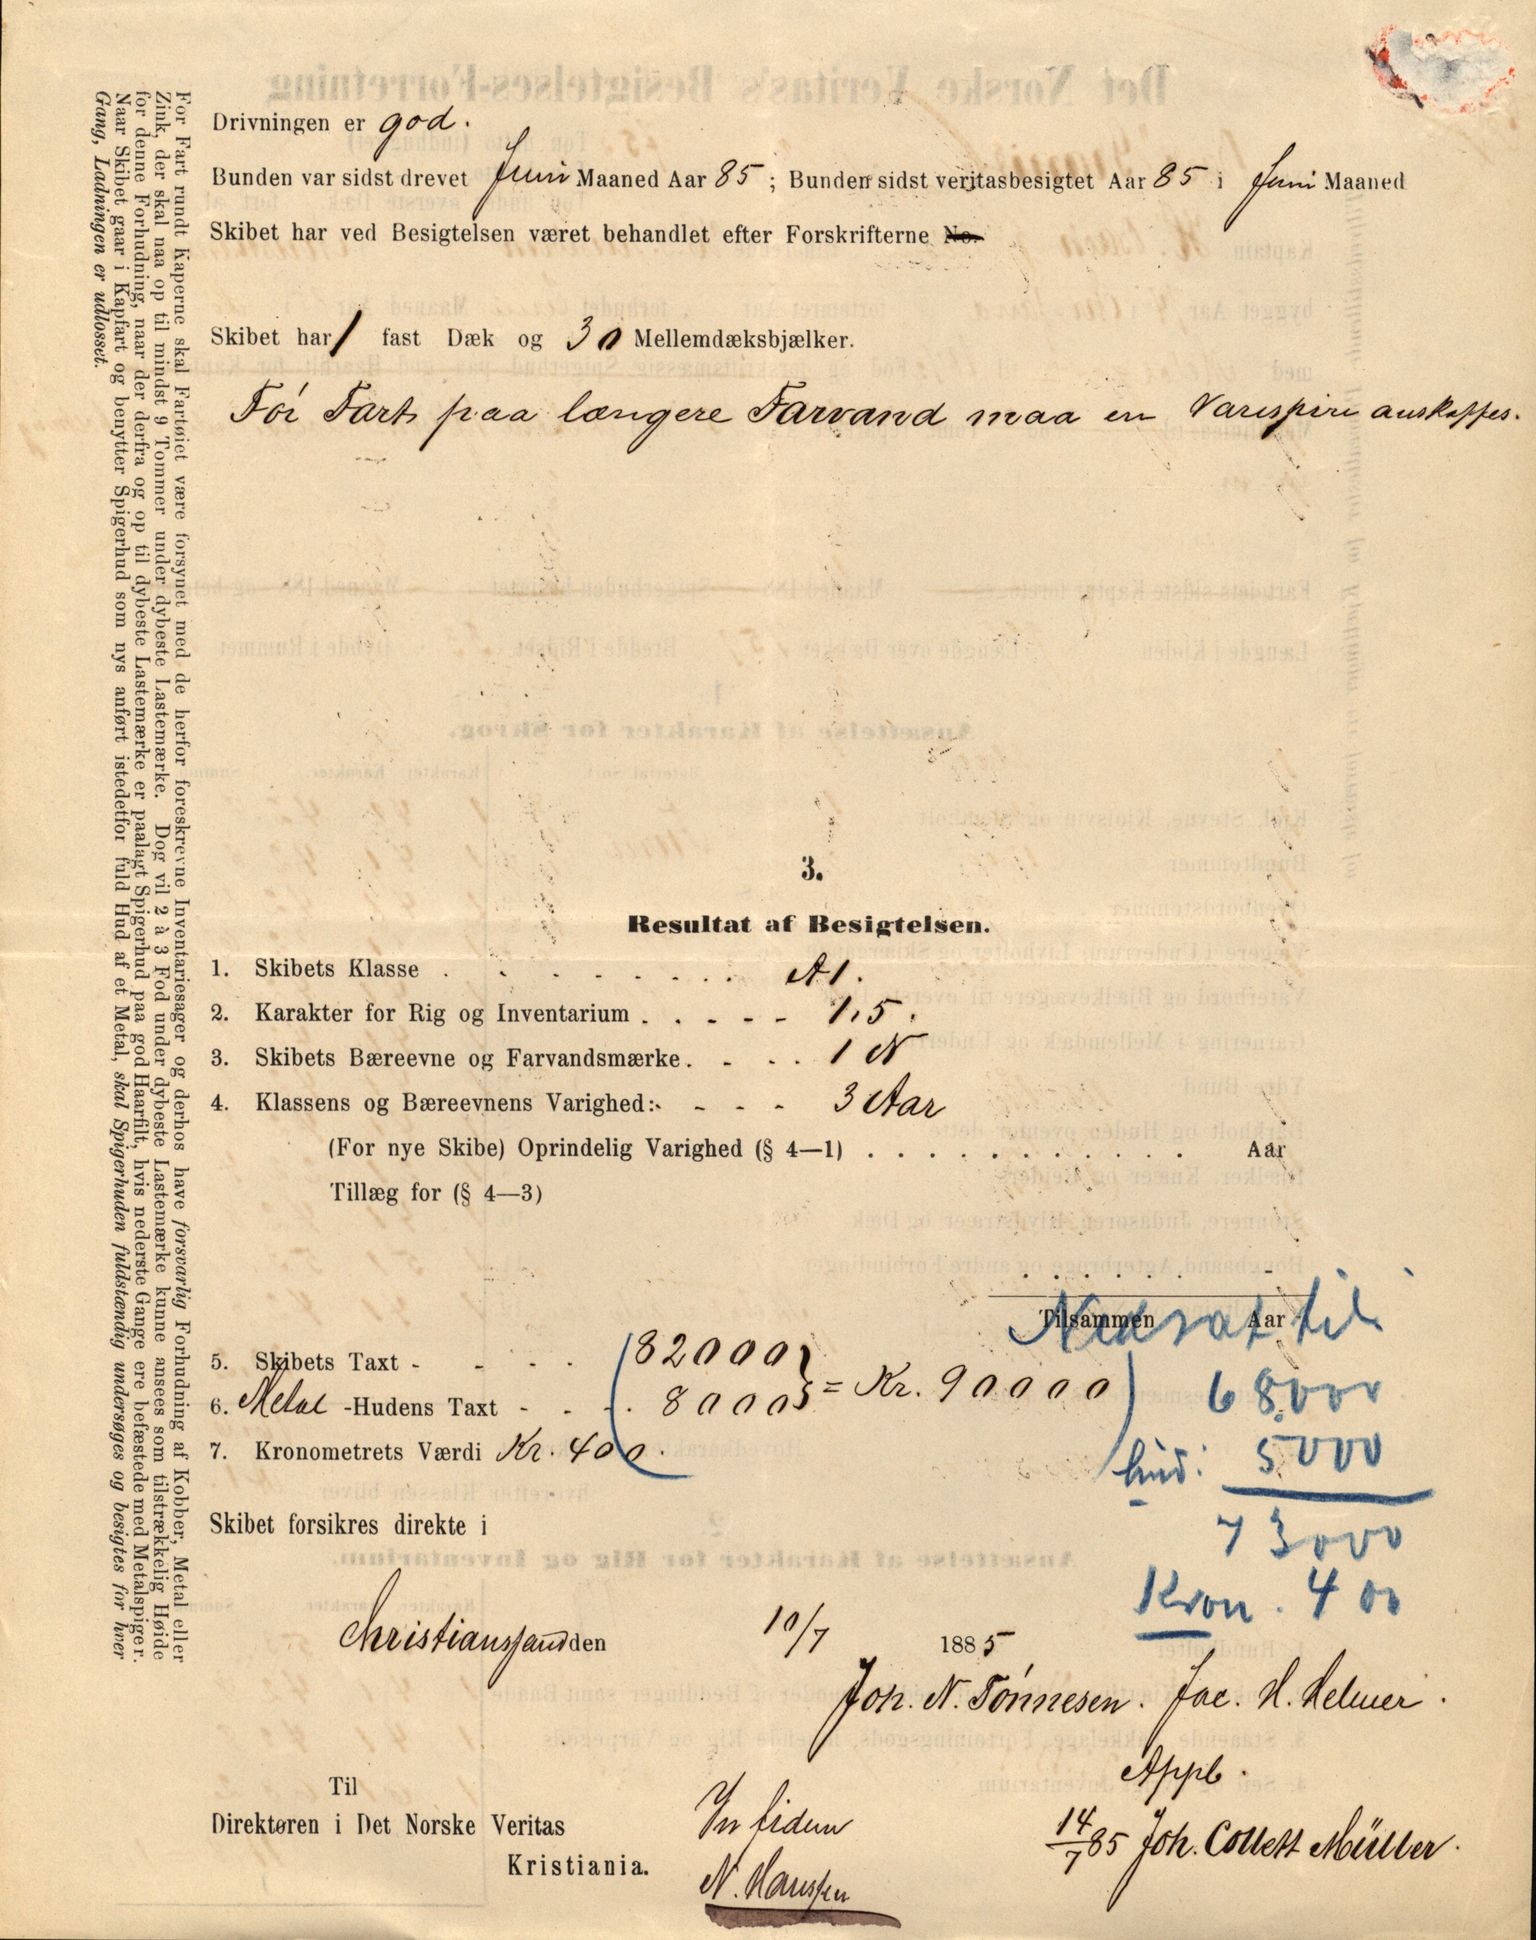 Drivningen er god.
Bunden var sidst drevet Juni Maaned Aar 85; Bunden sidst veritasbesigtet Aar 85 i Juni Maaned
Skibet har ved Besigtelsen været behandlet efter Forskrifterne No.
Skibet har 1 fast Dæk og 30 Mellemdæksbjælker.
For Fart paa længere Farvand maa en Varespire anskaffes.
3.
Resultat af Besigtelsen.
1. Skibets Klasse . . . . . . . . A1.
2. Karakter for Rig og Inventarium . . . . . 1,5.
3. Skibets Bæreevne og Farvandsmærke. . . . 1 N
4. Klassens og Bæreevnens Varighed: . . . . 3 Aar
(For nye Skibe) Oprindelig Varighed (§ 4—1) . . . . . . . . . . . Aar
Tillæg for (§ 4—3)
. . . . . .
Tilsammen Aar
Nedsat til
5. Skibets Taxt - - . . (82000
6. Metal -Hudens Taxt - - . 8000} = Kr. 90000)
7. Kronometrets Værdi Kr. 400.
68,000
hud: 5000
73000
Kron. 400
Skibet forsikres direkte i
Christianssand den 10/7 1885
Joh. N. Tönnesen. Jac. H. Helmer.
Appb.
14/7 85 Joh. Collett Müller.
Til
Direktøren i Det Norske Veritas
Kristiania.
In fidem
N. Hanssen
For Fart rundt Kaperne skal Fartøiet være forsynet med de herfor foreskrevne Inventariesager og derhos have forsvarlig Forhudning af Kobber, Metal eller
Zink, der skal naa op til mindst 9 Tommer under dybeste Lastemærke. Dog vil 2 à 3 Fod under dybeste Lastemærke kunne ansees som tilstrækkelig Høide
for denne Forhudning, naar der derfra og op til dybeste Lastemærke er paalagt Spigerhud paa god Haarfilt, hvis nederste Gange ere befæstede med Metalspiger.
Naar Skibet gaar i Kapfart og benytter Spigerhud som nys anført istedetfor fuld Hud af et Metal, skal Spigerhuden fuldstændig undersøges og besigtes for hver
Gang, Ladningen er udlosset.